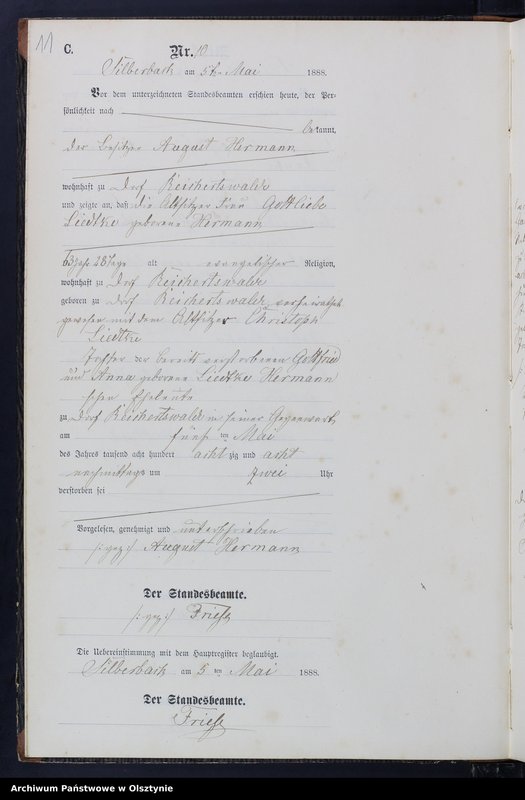 11
C.
Nr. 10
Silberbach am 5ten Mai 1888.
Vor dem unterzeichneten Standesbeamten erschien heute, der Per-
sönlichkeit nach
bekannt,
der Besitzer August Hermann
wohnhaft zu Dorf Reichertswalde
und zeigte an, daß die Altsitzer Frau Gottliebe
Liedtke geborene Hermann
63 Jahr 28 Tage alt evangelischer Religion,
wohnhaft zu Dorf Reichertswalde
geboren zu Dorf Reichertswalde, verheirathet
gewesen mit dem Altsitzer Christoph
Liedtke
Tochter der bereits verstorbenen Gottfried
und Anna geborene Liedtke Hermann
schen Eheleute
zu Dorf Reichertswalde in seiner Gegenwart
am fünf ten Mai
des Jahres tausend acht hundert acht zig und acht
nachmittags um zwei Uhr
verstorben sei
Vorgelesen, genehmigt und unterschrieben
/:gez:/ August Hermann
Der Standesbeamte.
/:gez:/ Friese
Die Uebereinstimmung mit dem Hauptregister beglaubigt.
Silberbach am 5 ten Mai 1888.
Der Standesbeamte.
Friese
Archiwum Państwowe w Olsztynie